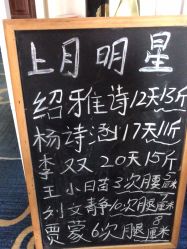 上月明星
绍雅诗12天13斤
杨诗涵17天11斤
李双20天15斤
王小白苗3次腰5厘米
刘文静10次腿厘米
贾蒙6次腿8厘米